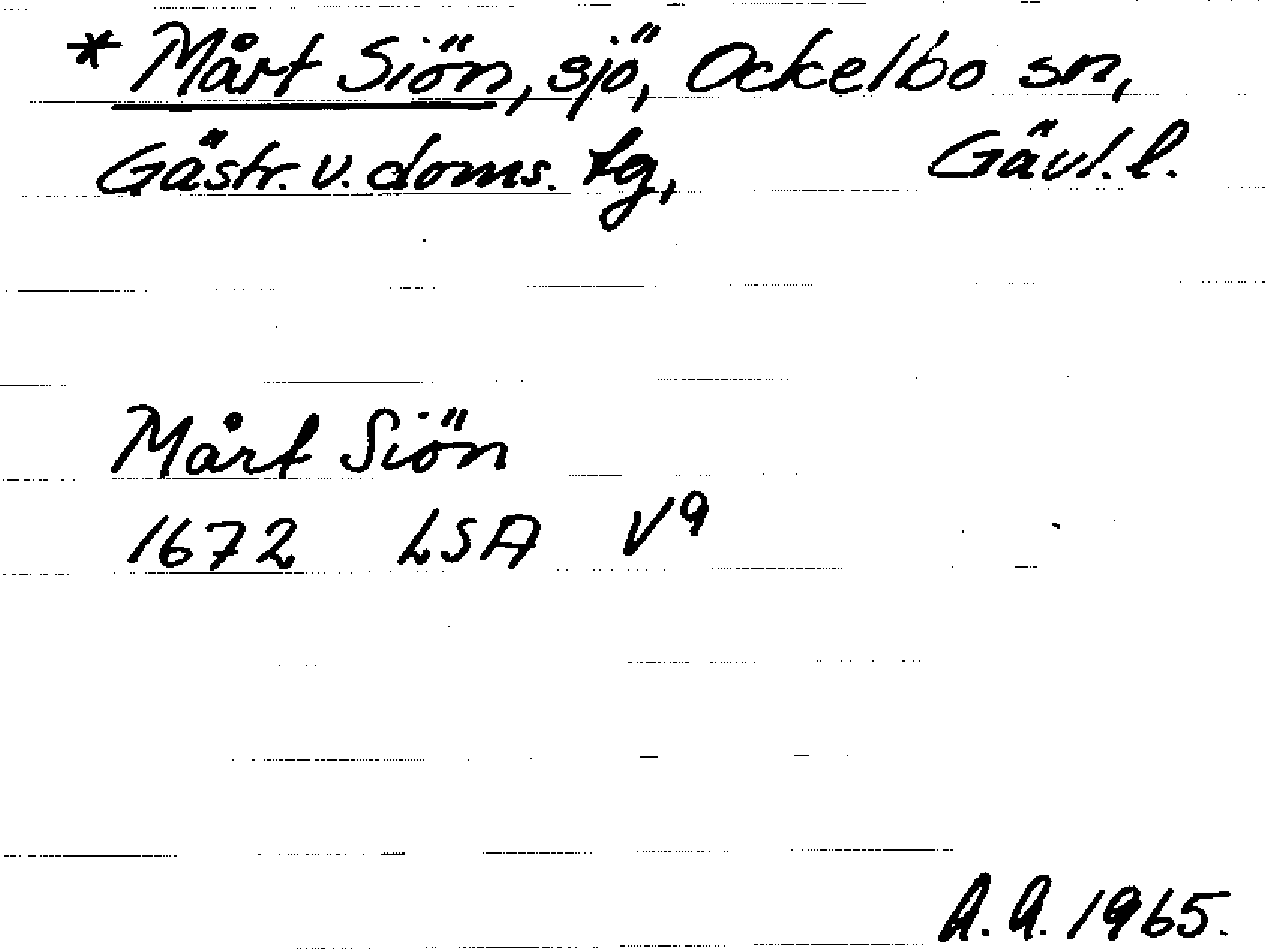 * Mårt Siön, sjö, Ockelbo sn,
Gästr. v. doms. tg, Gävl. l.
Mårt Siön
1672 LSA V9
A. A. 1965.